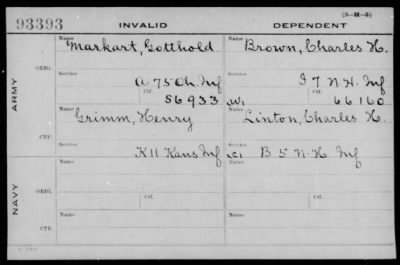 (3-H-5)
93393 INVALID DEPENDENT
Name Name
Markart, Gotthold Brown, Charles H.
ORIG.
Service Service
A 75 Oh. Inf I 7 N.H. Inf
Ctf. Ctf.
56933 W. 66160
ARMY
Name Name
Grimm, Henry Linton, Charles H.
CTF.
Service
K 11 Kans Inf C B 5 N.H. Inf
Name Name
NAVY
ORIG.
Service Service
Ctf. Ctf.
Name Name
CTF.
Service Service